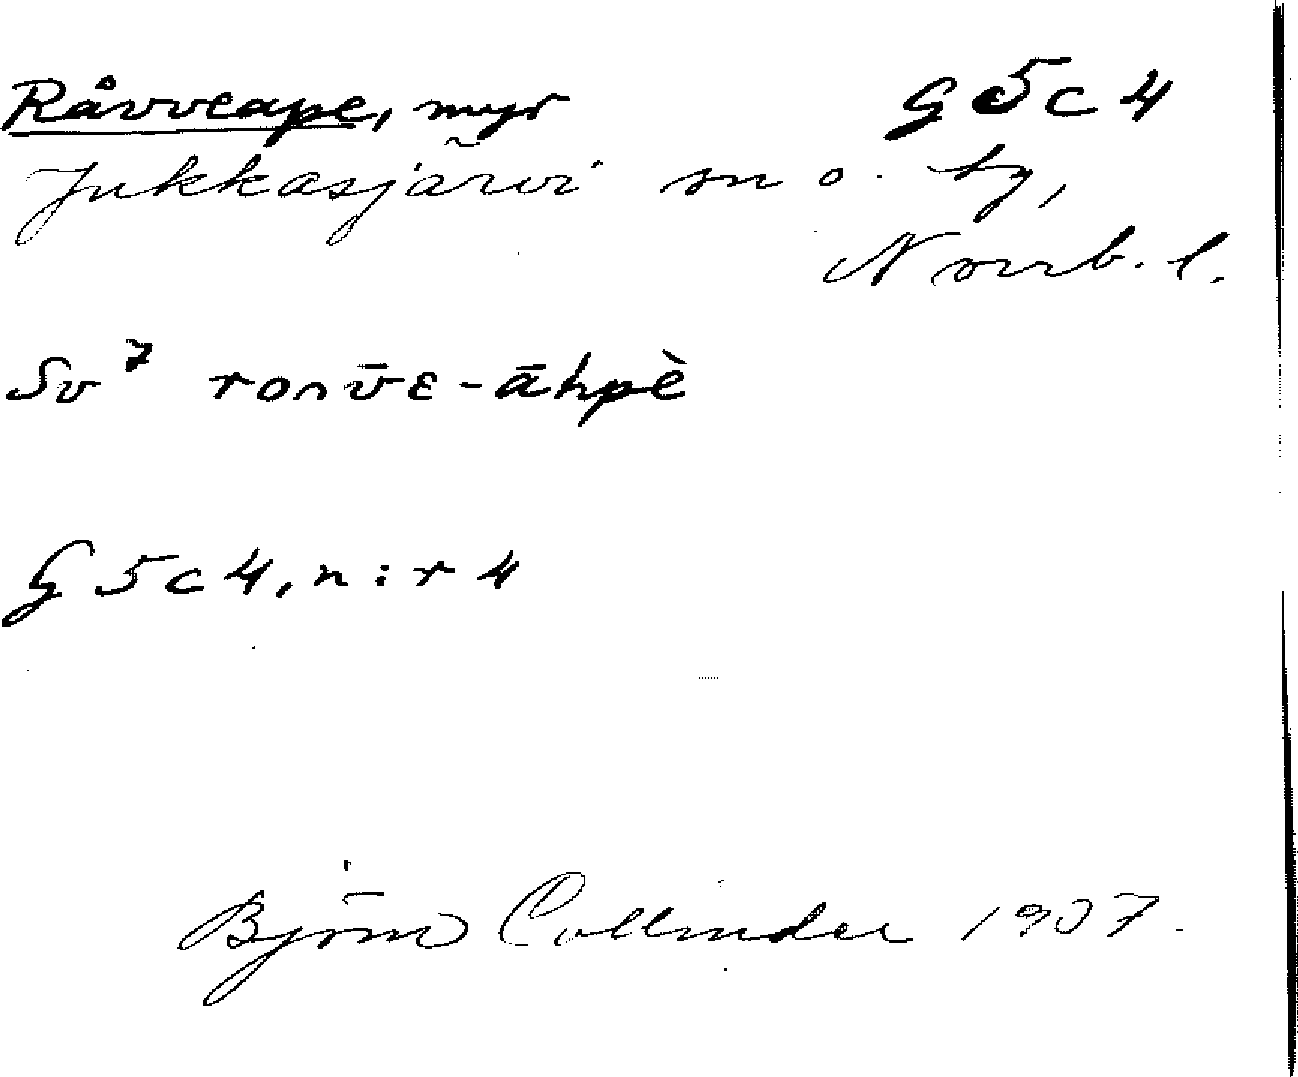 Råvveape, myr G5c4
Jukkasjärvi sn o. tg,
Norrb. l.
Sv 7 ro∩v̄ɛ-āhpè
G5c4, n:r 4
Björn Collinder 1907.